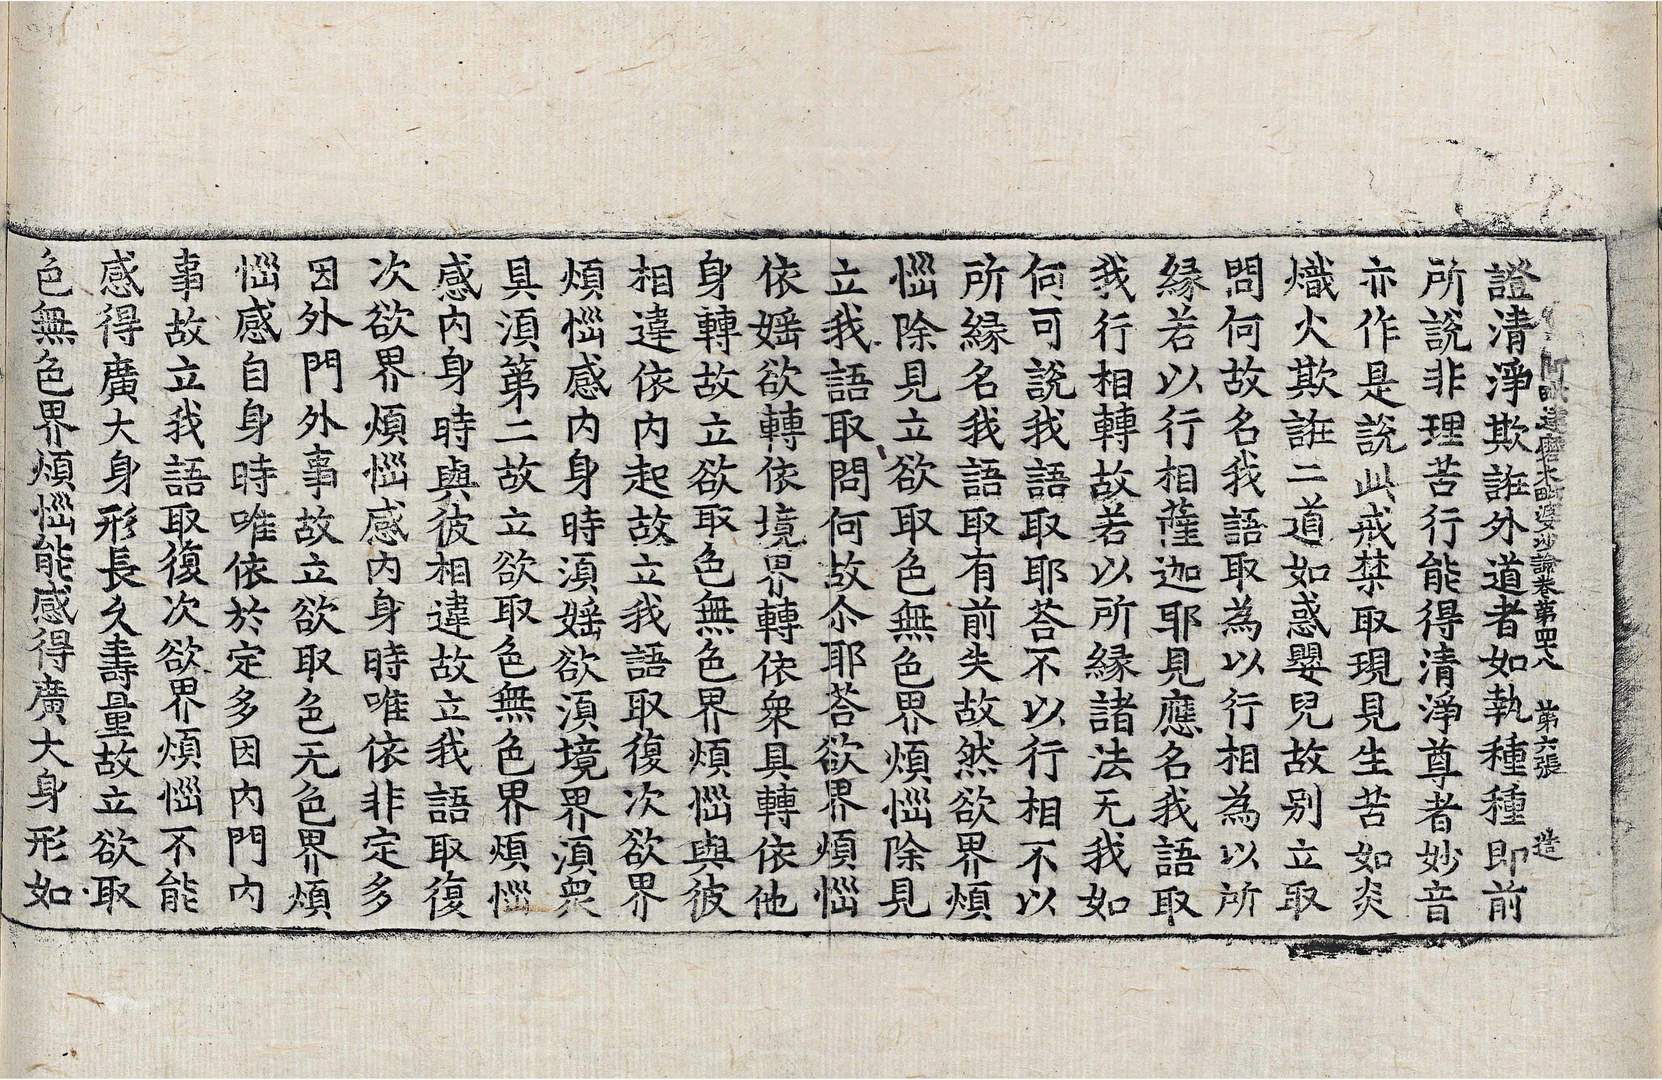 阿毗達磨大毗婆沙論卷第四十八　第六張　造
證清淨欺誑外道者如執種種即前
所說非理苦行能得清淨尊者妙音
亦作是說此戒禁取現見生苦如炎
熾火欺誑二道如惑嬰兒故别立取
問何故名我語取為以行相為以所
緣若以行相薩迦耶見應名我語取
我行相轉故若以所緣諸法无我如
何可說我語取耶荅不以行相不以
所緣名我語取有前失故然欲界煩
惱除見立欲取色無色界煩惱除見
立我語取問何故尒耶荅欲界煩惱
依婬欲轉依境界轉依衆具轉依他
身轉故立欲取色無色界煩惱與彼
相違依內起故立我語取復次欲界
煩惱感內身時湏婬欲湏境界湏衆
具湏第二故立欲取色無色界煩惱
感內身時與彼相違故立我語取復
次欲界煩惱感內身時唯依非定多
因外門外事故立欲取色无色界煩
惱感自身時唯依於定多因內門內
事故立我語取復次欲界煩惱不能
感得廣大身形長久壽量故立欲取
色無色界煩惱能感得廣大身形如